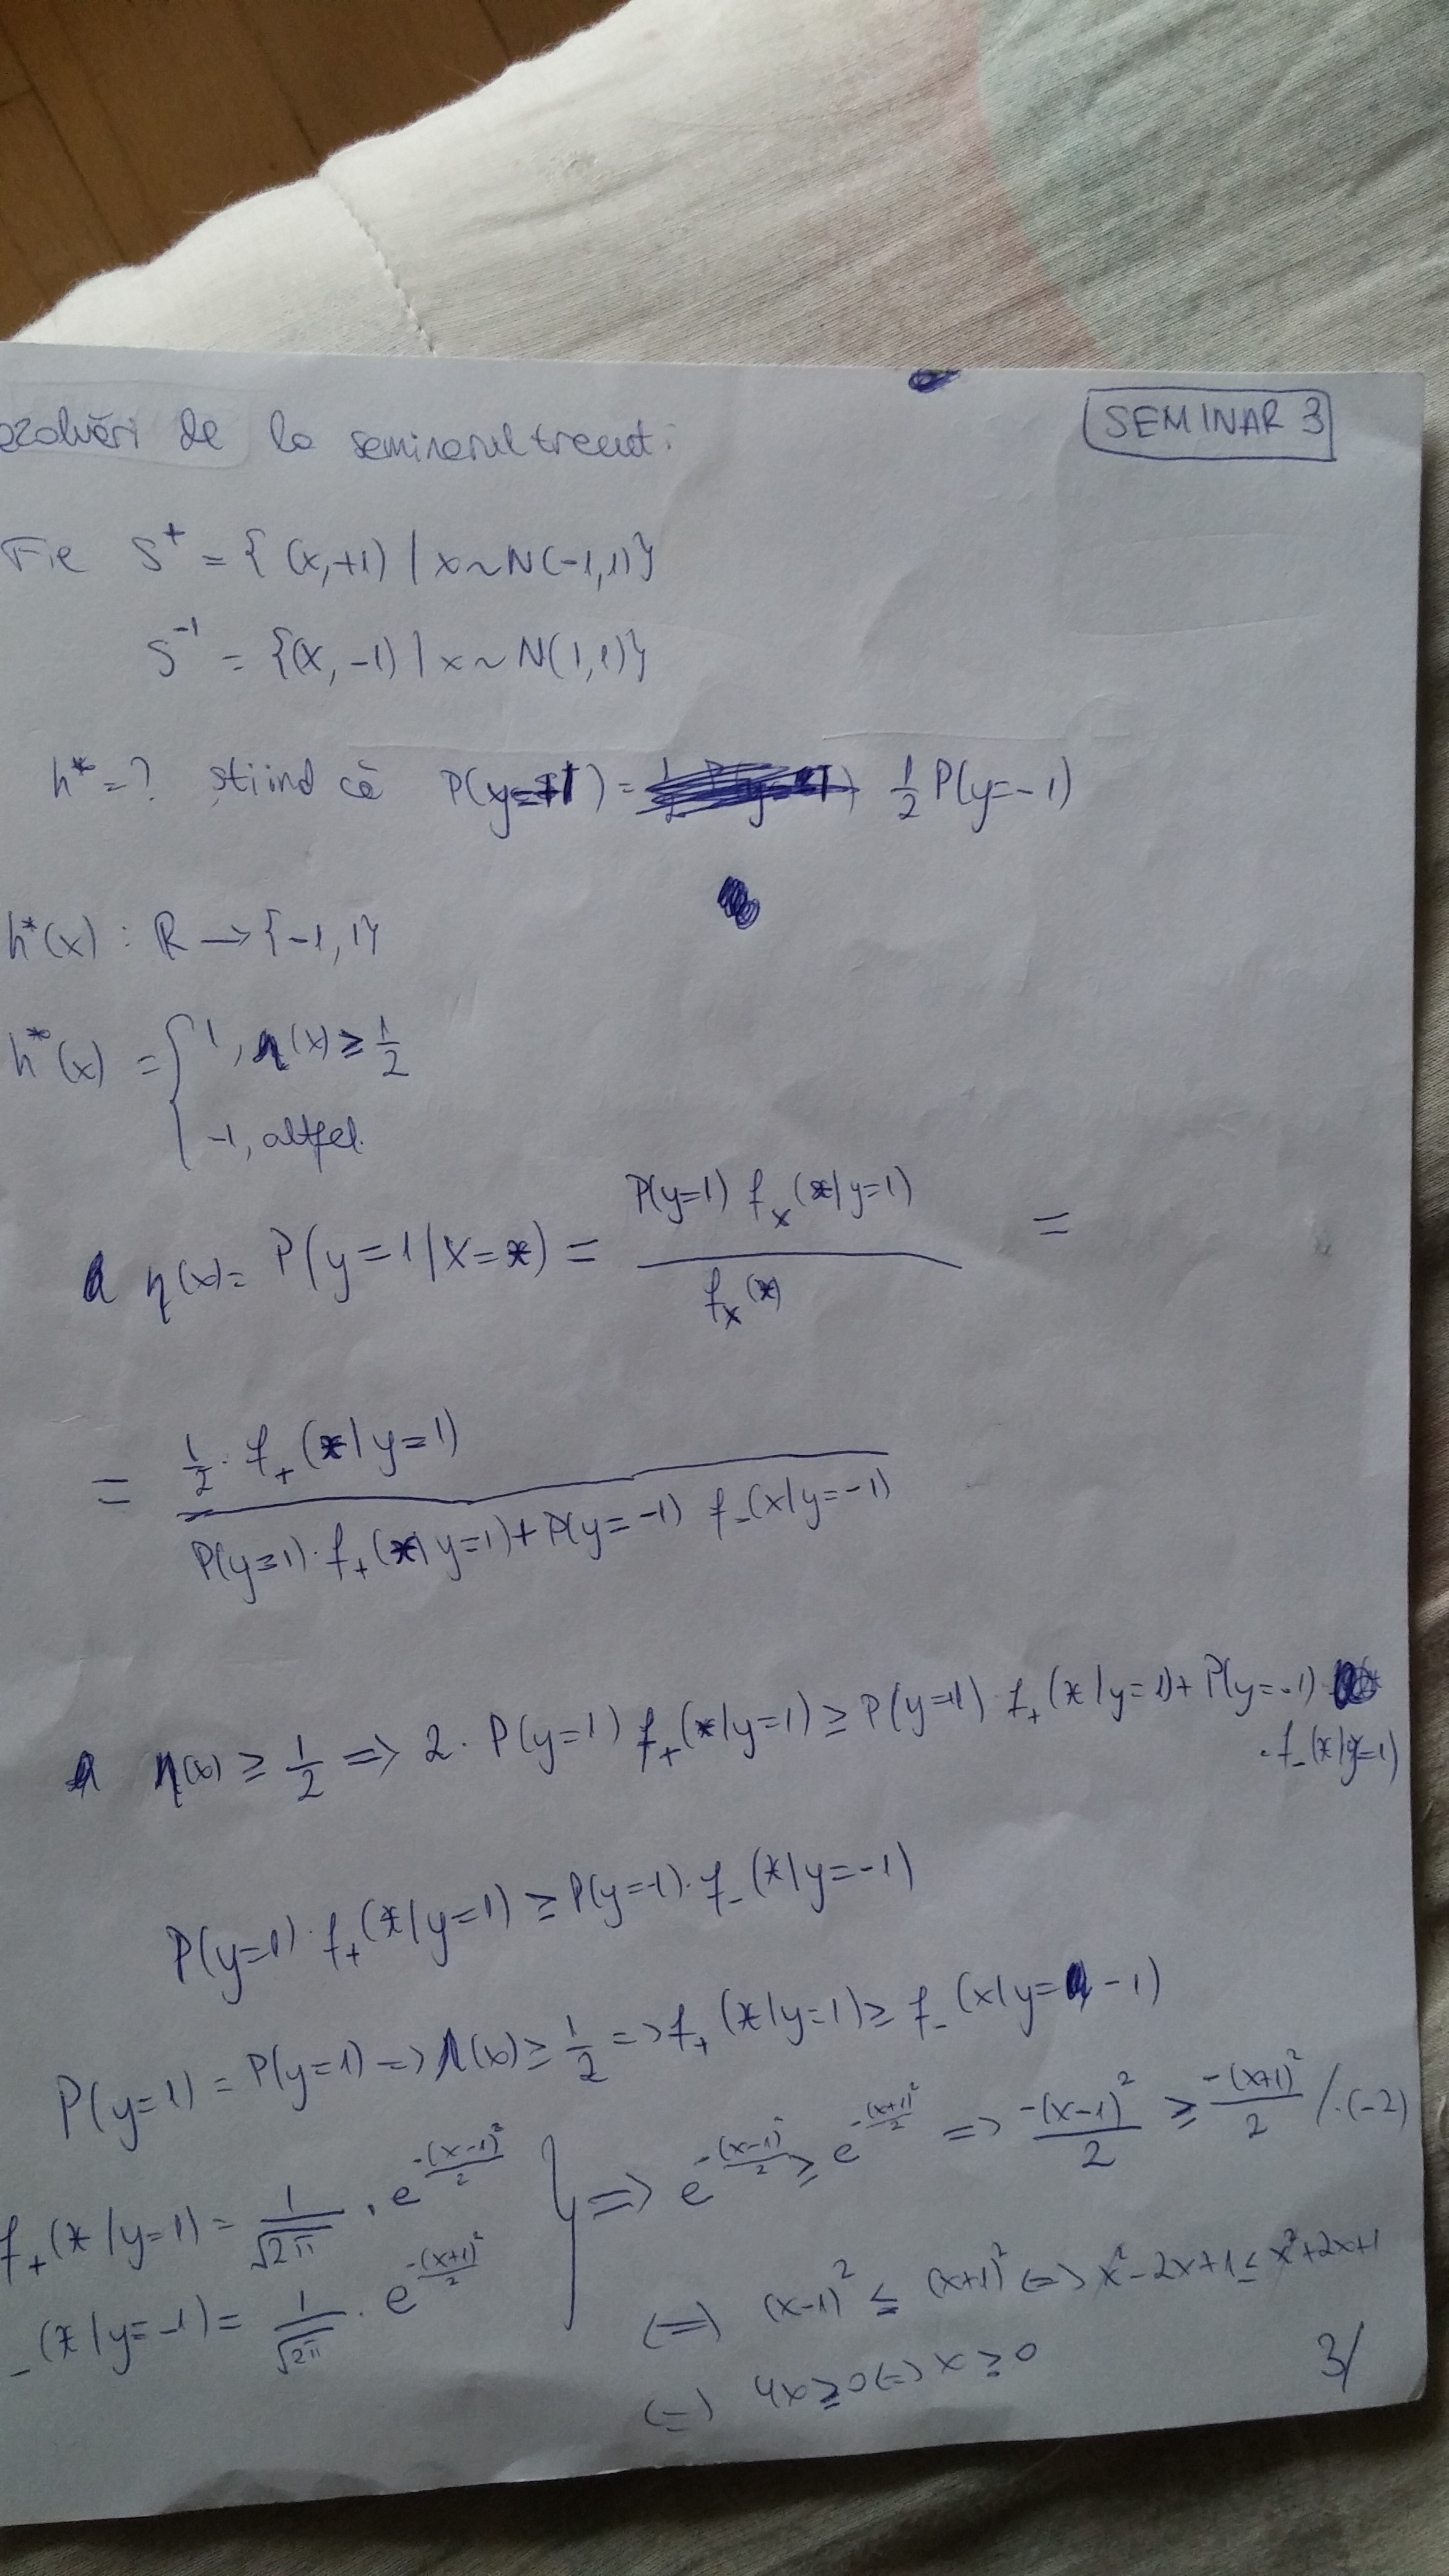 SEMINAR 3
ezolvări de la seminarul trecut:
Fie S⁺ = { (x,+1) | x ~ N(-1,1)}
S⁻¹ = {(x,-1) | x ~ N(1,1)}
h* = ? știind că P(y=+1) = 1/2 P(y=-1)
h*(x) : R → {-1,1}
h*(x) = { 1, η(x) ≥ 1/2
-1, altfel.
η(x) = P(y=1|X=x) = P(y=1) f_x(x|y=1) / f_x(x) =
= 1/2 · f₊(x|y=1) / P(y=1)·f₊(x|y=1) + P(y=-1) f₋(x|y=-1)
η(x) ≥ 1/2 => 2 · P(y=1) f₊(x|y=1) ≥ P(y=1) · f₊(x|y=1) + P(y=-1)
· f₋(x|y=1)
P(y=1) · f₊(x|y=1) ≥ P(y=-1) · f₋(x|y=-1)
P(y=1) = P(y=1) => η(x) ≥ 1/2 => f₊(x|y=1) ≥ f₋(x|y=-1)
f₊(x|y=1) = 1/√2π · e^(-(x-1)²/2) } => e^(-(x-1)²/2) ≥ e^(-(x+1)²/2) => -(x-1)²/2 ≥ -(x+1)²/2 /·(-2)
₋(x|y=-1) = 1/√2π · e^(-(x+1)²/2)
(=) (x-1)² ≤ (x+1)² (=> x²-2x+1 ≤ x²+2x+1
(=) 4x ≥ 0 (=) x ≥ 0
3/